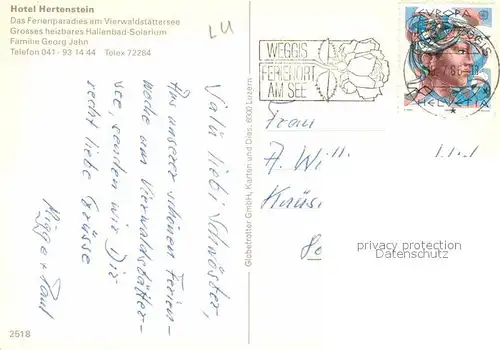 Hotel Hertenstein
Das Ferienparadies am Vierwaldstättersee
Grosses heizbares Hallenbad-Solarium
Familie Georg Jahn
Telefon 041 - 93 14 44 Telex 72284
LU
Salü liebi Schwöster,
Aus unserer schönen Ferien-
woche am Vierwaldstätter-
see, senden wir Dir
recht liebe Grüsse
Migger + Paul
2518
Globetrotter GmbH, Karten und Dias, 6000 Luzern
WEGGIS
FERIENORT
AM SEE
EUROPA
WEGGIS
HELVETIA
Frau
A. Wi
privacy protection
Datenschutz